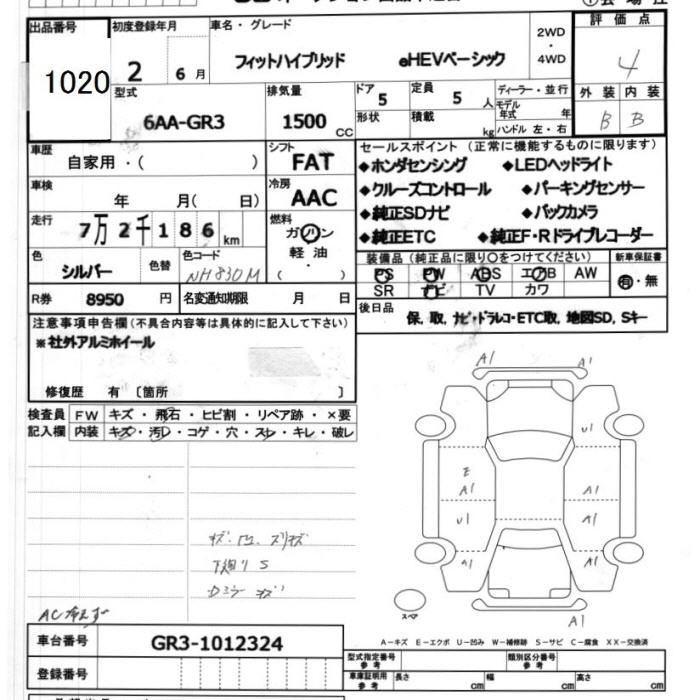 出品番号 初度登録年月 車名・グレード 2WD・4WD 評価点
1020 2 6月 フィットハイブリッド eHEVベーシック 4
型式 排気量 ドア 定員 ディーラー・並行 外装 内装
6AA-GR3 1500 CC 5 5 人 モデル年式 年 B B
形状 積載 kg ハンドル 左・右
車歴 シフト セールスポイント (正常に機能するものに限ります)
自家用・( ) FAT ◆ホンダセンシング ◆LEDヘッドライト
車検 冷房 ◆クルーズコントロール ◆パーキングセンサー
年 月( 日) AAC ◆純正SDナビ ◆バックカメラ
走行 7万2千186km 燃料 ◆純正ETC ◆純正F・Rドライブレコーダー
ガソリン
色 色替 色コード 軽油 装備品 (純正品に限り○をつけてください) 新車保証書
シルバー NH830M ( ) PS PW ABS エアB AW 有・無
SR ナビ TV カワ
R券 8950 円 名変通知期限 月 日 後日品
保, 取, ナビ・ドラレコ・ETC取, 地図SD, Sキー
注意事項申告欄 (不具合内容等は具体的に記入して下さい)
※社外アルミホイール
修復歴 有 〔箇所 〕
検査員 FW キズ・飛石・ヒビ割・リペア跡・×要
記入欄 内装 キズ・汚レ・コゲ・穴・スレ・キレ・破レ
A1 A1
U1
E
A1 A1
U1 A1
A1 A1
下廻りS
スペア A1
A-キズ E-エクボ U-凹み W-補修跡 S-サビ C-腐食 XX-交換済
車台番号 GR3-1012324
型式指定番号 参考 類別区分番号 参考
登録番号 車庫証明用 参考 長さ cm 幅 cm 高さ cm